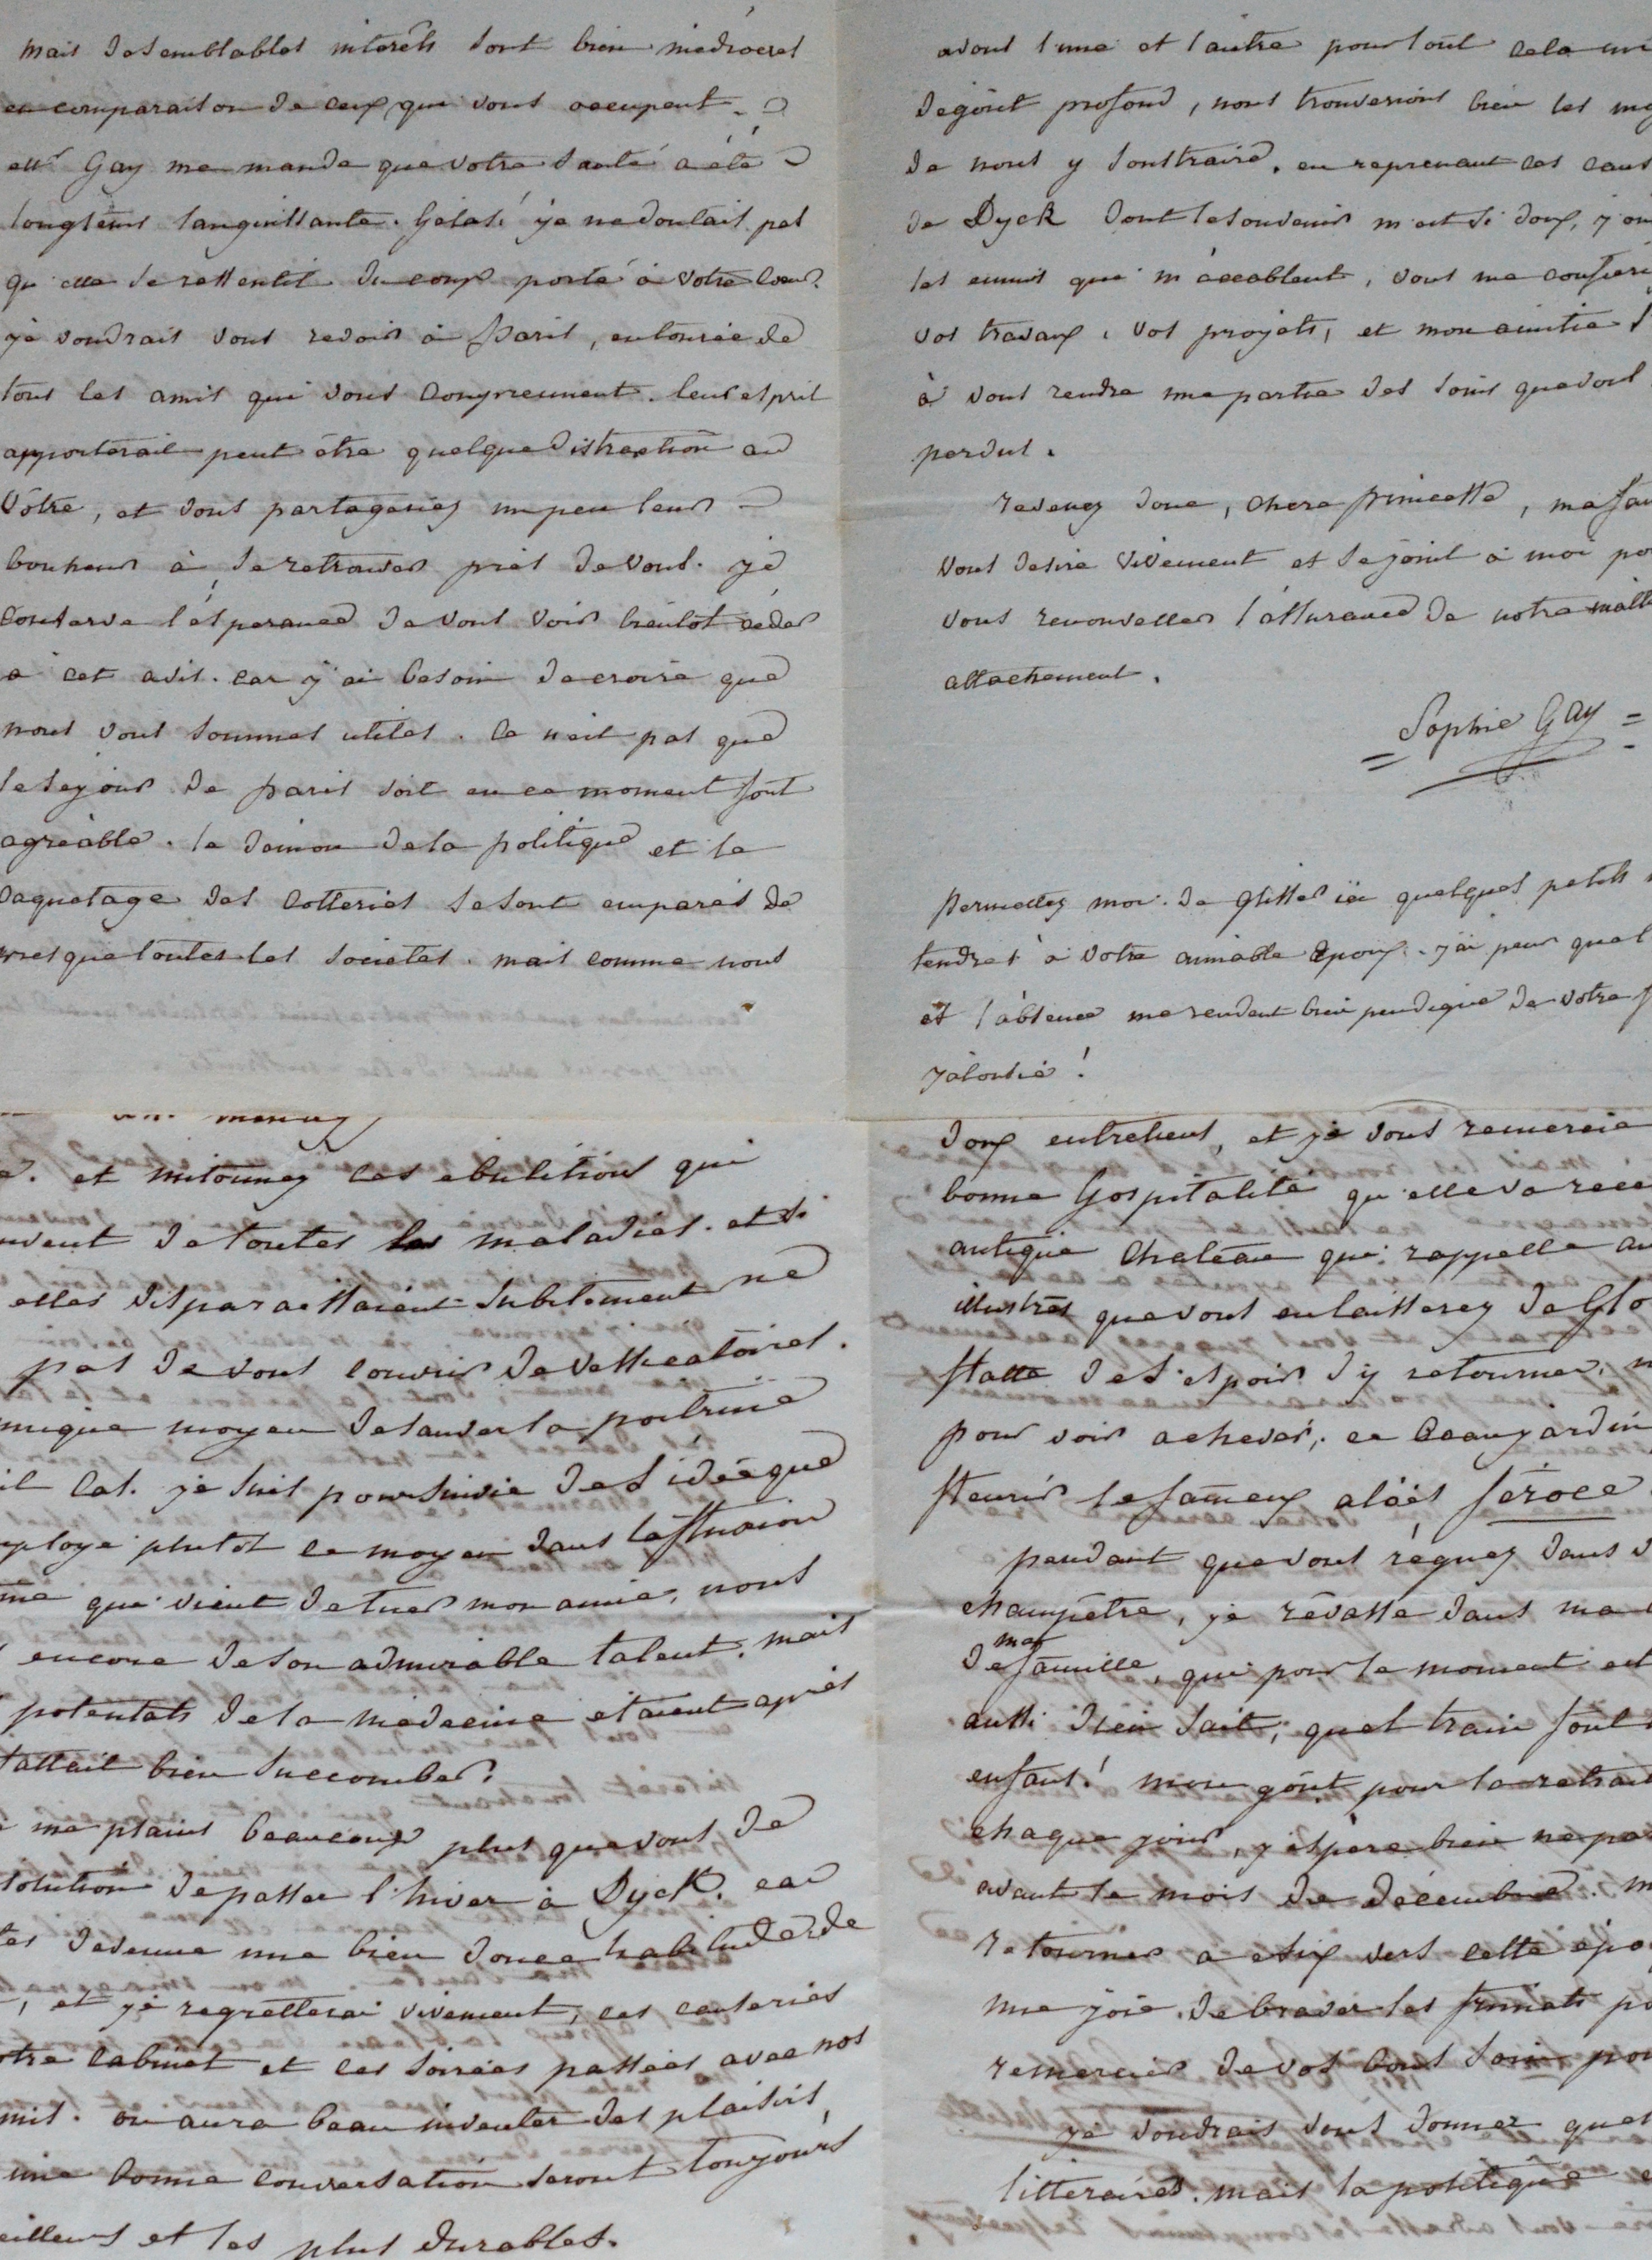 mais de semblables interêts sont bien mediocres
en comparaison de ceux qui vous occupent.
Mr Gay me mande que votre santé a été
longtems languissante. helas! je ne doutais pas
qu'elle se ressentit du coup porté à votre coeur.
je voudrais vous revoir à paris, entourée de
tous les amis qui vous comprennent. leur esprit
apporterait peut être quelque distraction au
vôtre, et vous partageriez un peu leur
bonheur à se retrouver près de vous. je
conserve l'ésperance de vous voir bientôt céder
a cet avis. car j'ai besoin de croire que
nous vous sommes utiles. Ce n'est pas que
le sejour de paris soit en ce moment fort
agréable. le démon de la politique et le
caquetage des cotteries se sont emparés de
presque toutes les sociétés. mais comme nous
avons l'une et l'autre pour tout cela un
dégoût profond, nous trouverions bien les moy
de nous y soustraire, en reprenant ces caus
de Dyck dont le souvenir m'est si doux, j'ou
les ennuis qui m'accablent, vous me confierie
vos travaux, vos projets, et mon amitié s
à vous rendre une partie des soins que vous
perdus.
revenez donc, chere princesse, ma fam
vous desire vivement et se joint à moi po
vous renouveller l'assurance de notre
attachement.
= Sophie Gay =
permettez moi de glisser ici quelques petits
tendres à votre aimable époux. j'ai peur que l
et l'absence me rendent bien peu digne de votre
jalousie!
et mitonnez ces ebulitions qui
de toutes les maladies. et si
elles disparaettaient subitement ne
pas de vous couvrir de vessicatoires.
unique moyen de sauver la poitrine
cas. je suis poursuivie de l'idée que
employé plutôt ce moyen dans l'affluxion
que vient de tuer mon amie, nous
encore de son admirable talent. mais
potentats de la médecine étaient après
fallait bien succomber.
me plains beaucoup plus que vous de
solution de passer l'hiver à Dyck. car
devenue une bien douce habitude de
, et je regretterai vivement, ces causeries
votre cabinet et ces soirées passées avec nos
amis. on aura beau inventer des plaisirs,
une bonne conversation seront toujours
eilleurs et les plus durables.
doux entretiens, et je vous remercie
bonne hospitalité qu'elle va recev
antique chateau qui rappelle
illustres que vous en laisserez de glo
flatte de l'espoir d'y retourner,
pour voir achever, ce beau jardin
fleurir le fameux aloès féroce
pendant que vous régnez dans v
champêtre, je rêvasse dans ma
de ma famille, qui pour le moment est
aussi dieu sait, quel train font
enfans! mon goût pour la retrait
chaque jour, j'espère bien ne pa
avant le mois de décembre.
retourner à aix vers cette épo
une joie de braver les frimats po
remercier de vos bons soins pou
je voudrais vous donner quel
litteraires. mais la politique